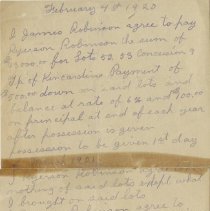 February 4th 1920
I James Robinson agree to pay
Ryerson Robinson the sum of
$3000.00 for Lots 52 53 Concession 2
Tp of Kincardine Payment of
$500.00 down on said lots and
balance at rate of 6% and $100.00
on principal at end of each year
after possession is given
possession to be given 1st day
1921
Ryerson Robinson agree
nothing of said lots except what
I brought on said lots
agree to